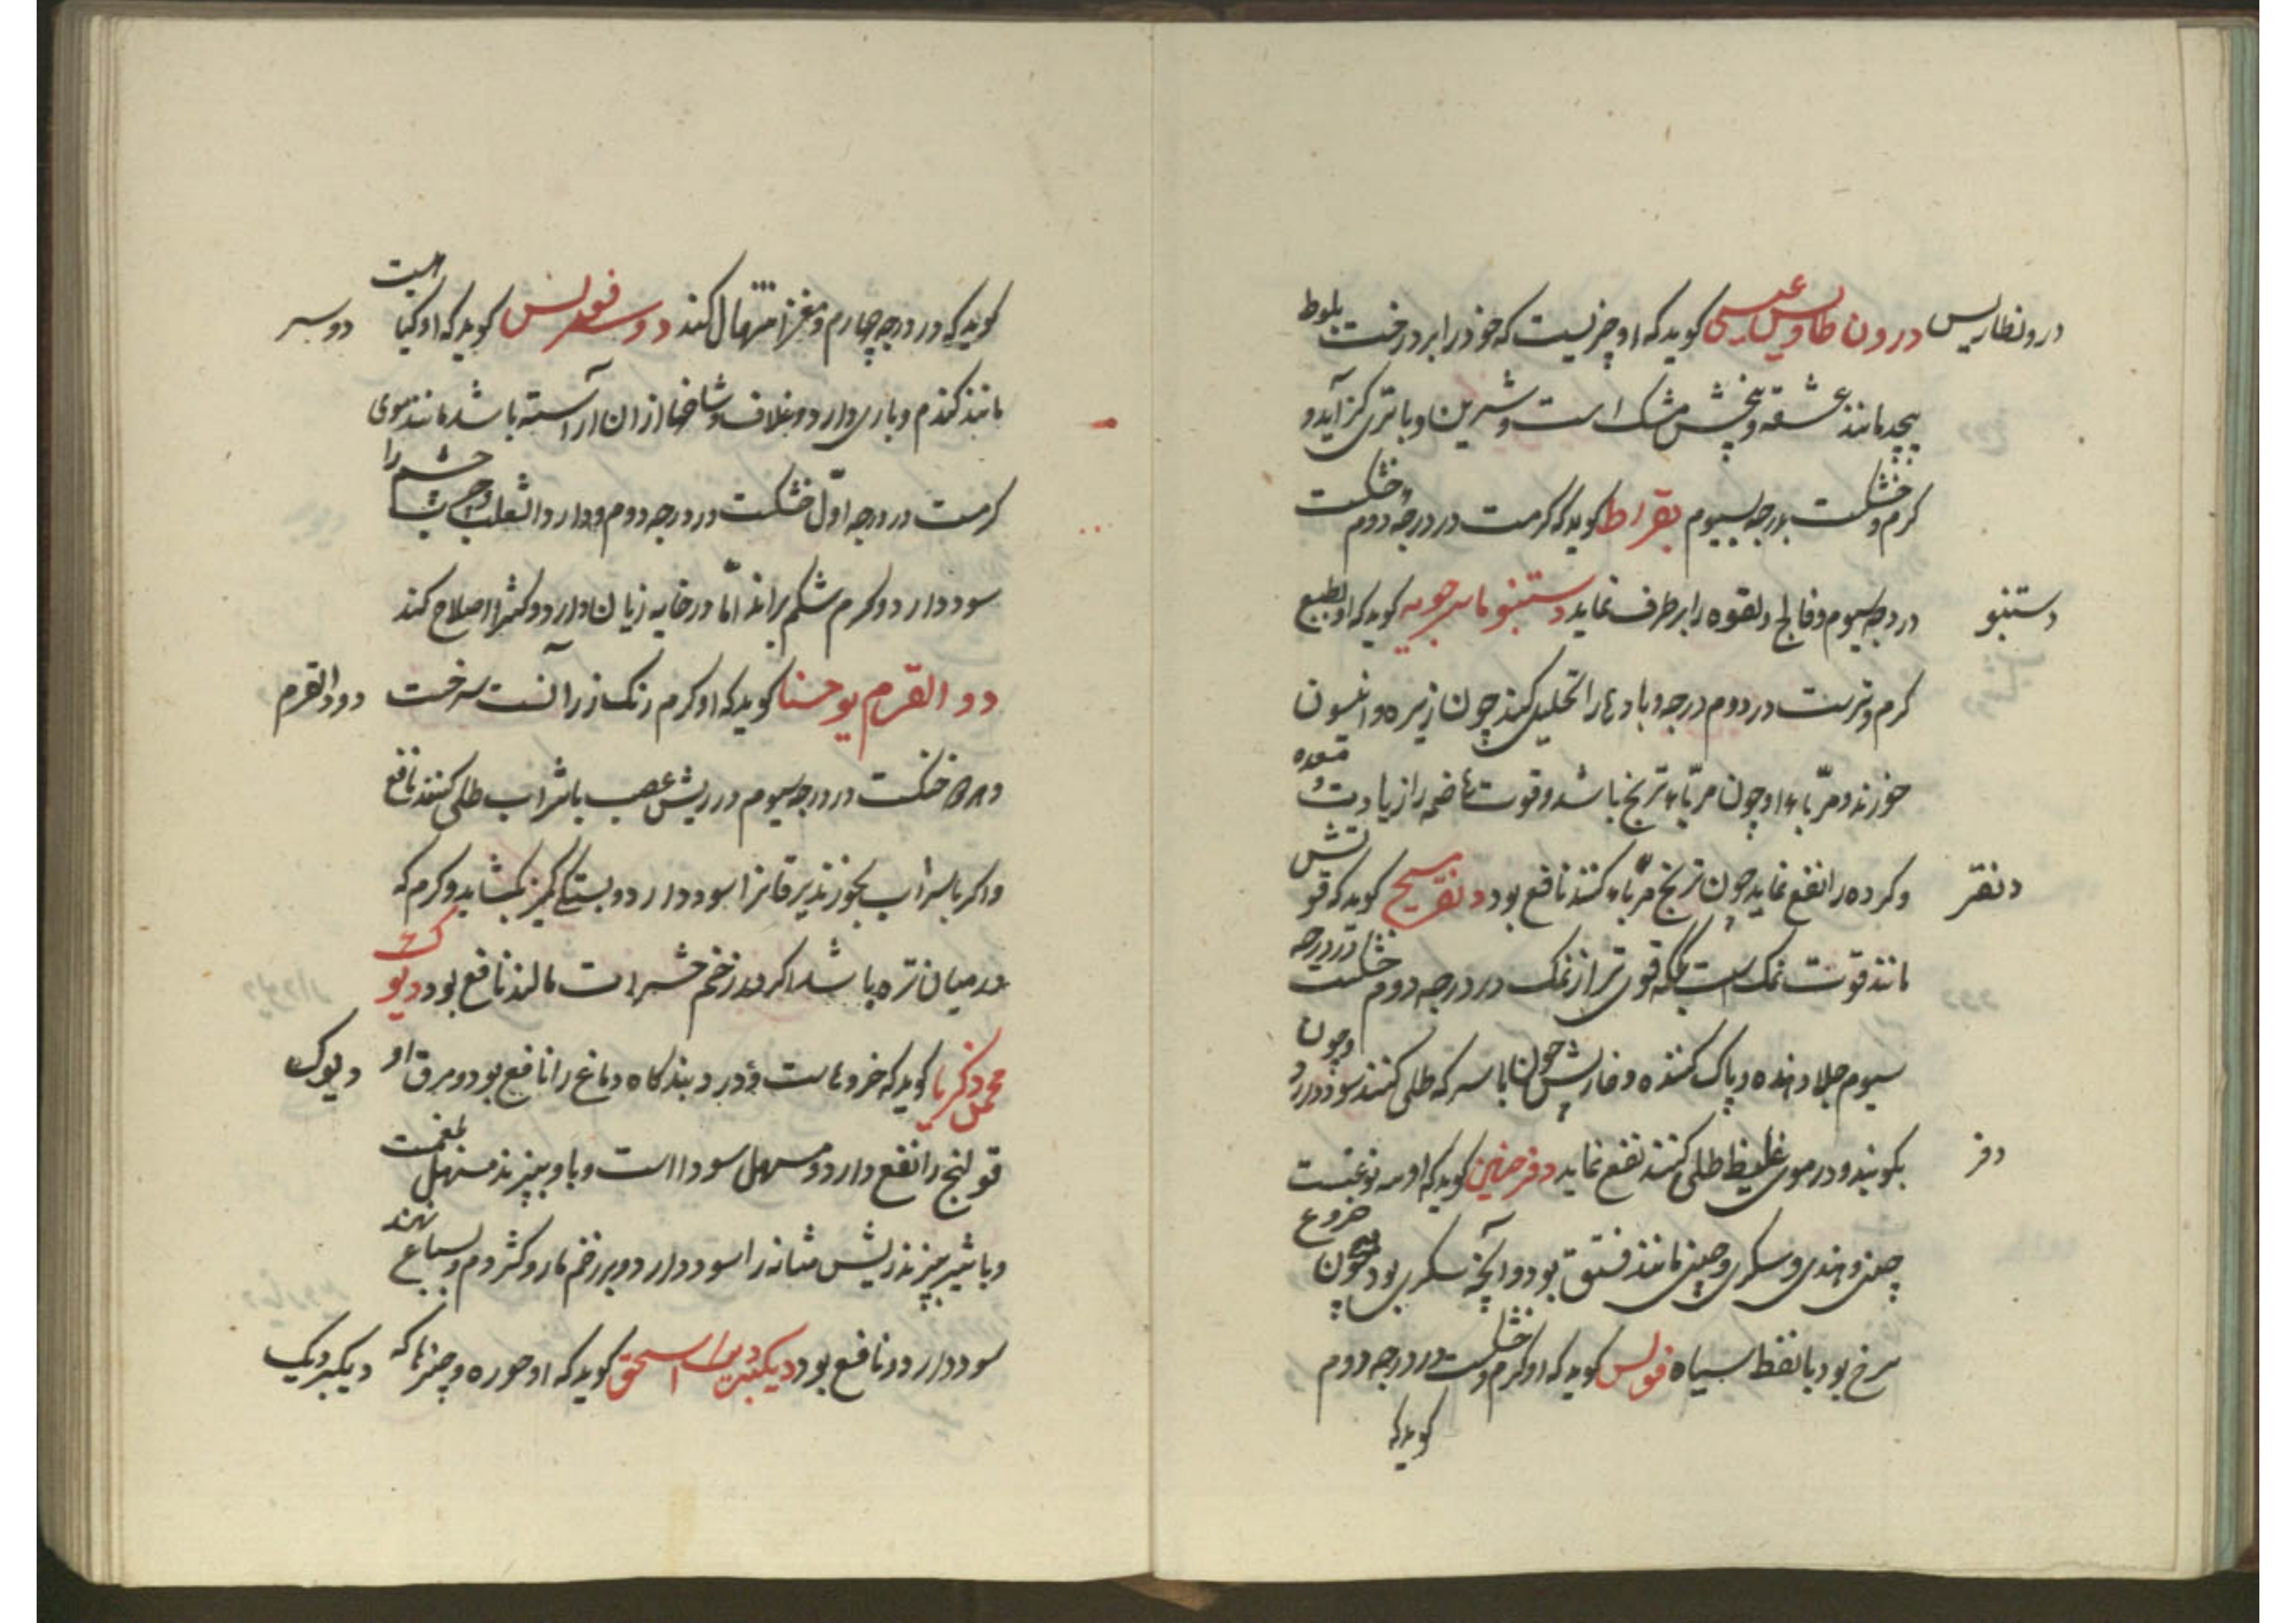 درونطاریس درون طاویس عیسی کوید که او چیزیست که خود را بر درخت بلوط
پیچد مانند عشقه و بیخش خشک است و شیرین او با تری کز آید و
کرم و خشکست بدرجه سیوم بقراط کوید که کرمست در درجه دوم خشکست
دستنبو در درجه سیوم و فالج و لقوه را برطرف نماید دستنبو ماسرجویه کوید که او بطبع
کرم و ترست در دوم درجه و بادها را تحلیل کند چون زیره و انیسون
خورند و مربای او چون مربای ترنج باشد و قوت هاضمه را زیادت و معده
دنقر و کرده را نفع نماید چون ترنج مربا کنند نافع بود دنقر مسیح کوید که قوتش
مانند قوت نمک است بلکه قوی تر از نمک در درجه دوم خشکست در درجه
سیوم جلا دهنده و پاک کننده و خارش چون با سرکه طلی کنند سود دارد و چون
دفر بکوبند و در موی غلیظ طلی کنند نفع نماید دفر حنین کوید که او سه نوعست
چینی و هندی و سکری و چینی مانند فستق بود و آنچه سکری بود همچون خروع
سرخ بود با نقط سیاه فولس کوید که او کرم و خشکست در درجه دوم
کوید که
کوید که در درجه چهارم و مغز اسهال کند دوسر فولس کوید که او کیاهیست دوسر
مانند کندم و باری دارد دو غلاف و شاخها از ان آراسته باشد مانند موی
کرمست در درجه اول خشکست در درجه دوم و دار و الثعلب چشم را
سود دارد و کرم شکم براند اما در خایه زیان دارد و کثیرا اصلاح کند
دود القرم یوحنا کوید که او کرم رنک زرآنست سرخست دودالقرم
خشکست در درجه سیوم در ریش عصب با شراب طلی کنند نافع
واکر با شراب بخورند یرقانرا سود دارد و بستکی کمیز بکشاید و کرم که
در میان تره باشد اکر در زخم حشرات مالند نافع بود دیوک
محمد زکریا کوید که خروهاست و درد بندکاه دماغ را نافع بود و مرق او دیوک
قولنج را نفع دارد و مسهل سودا است و با او بپزند مسهل بلغمست
و با شیر بپزند ریش مثانه را سود دارد و بر زخم مار و کژدم و سباع نهند
سود دارد و نافع بود دیکبردیک اسحق کوید که او حوره و چیزها که دیکبردیک